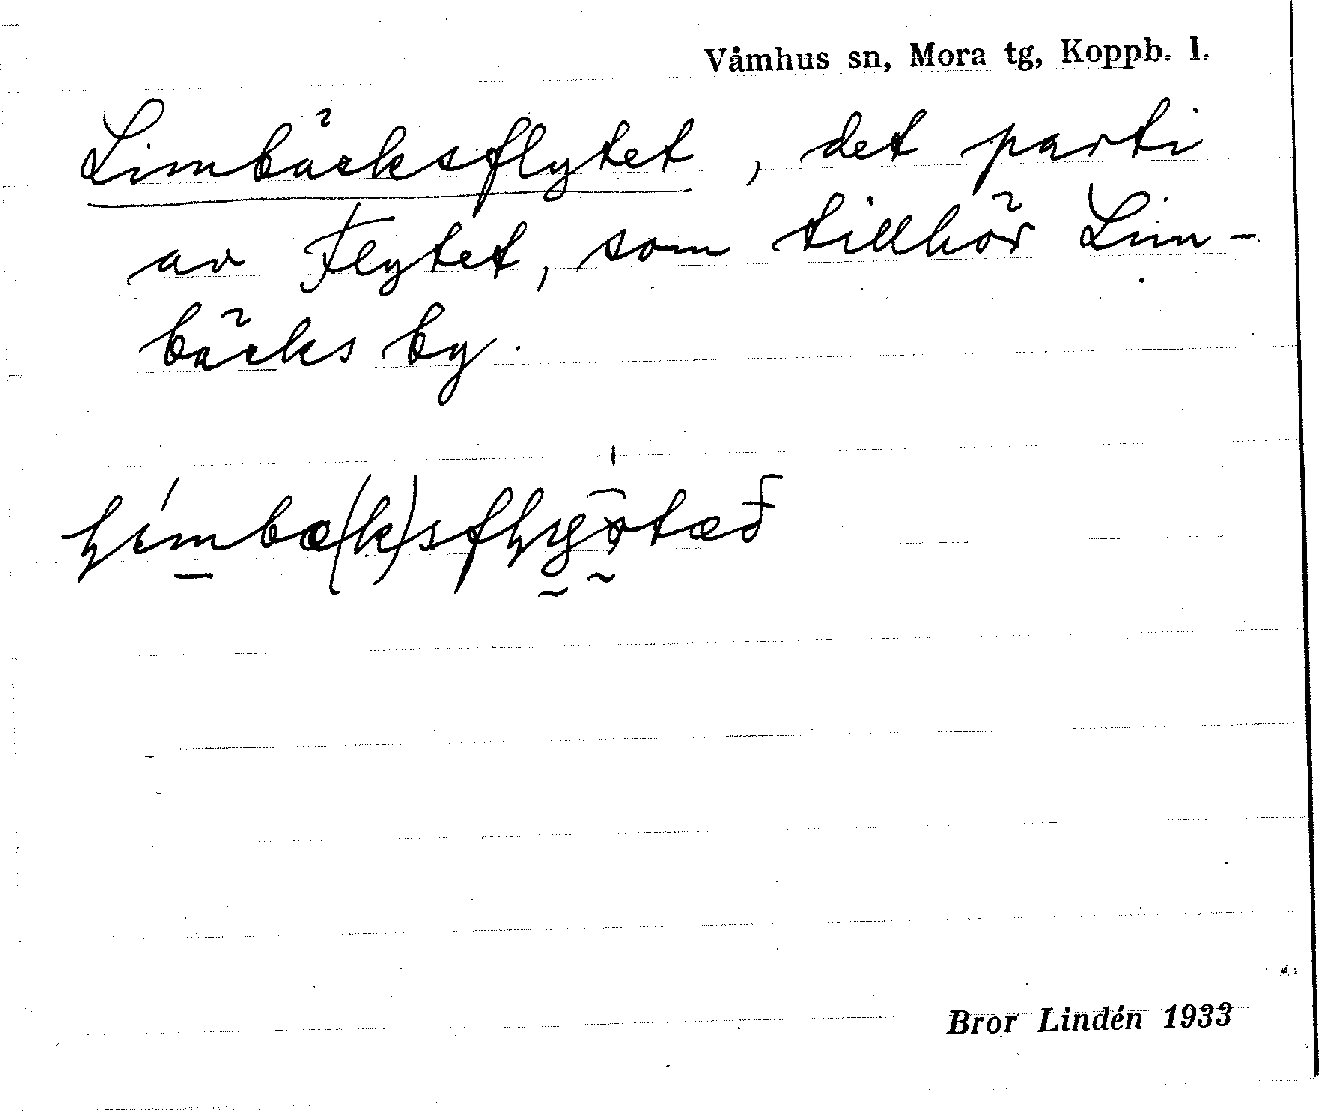 Våmhus sn, Mora tg, Koppb. l.
Limbäcksflytet, det parti
av Flytet, som tillhör Lim-
bäcks by.
Bror Lindén 1933